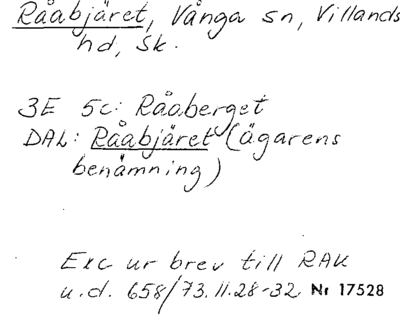 Råabjäret, Vånga sn, Villands
hd, Sk.
3E 5c: Råaberget
DAL: Råabjäret (ägarens
benämning)
Exc ur brev till RAK
u.d. 658/73.11.28-32 Nr 17528